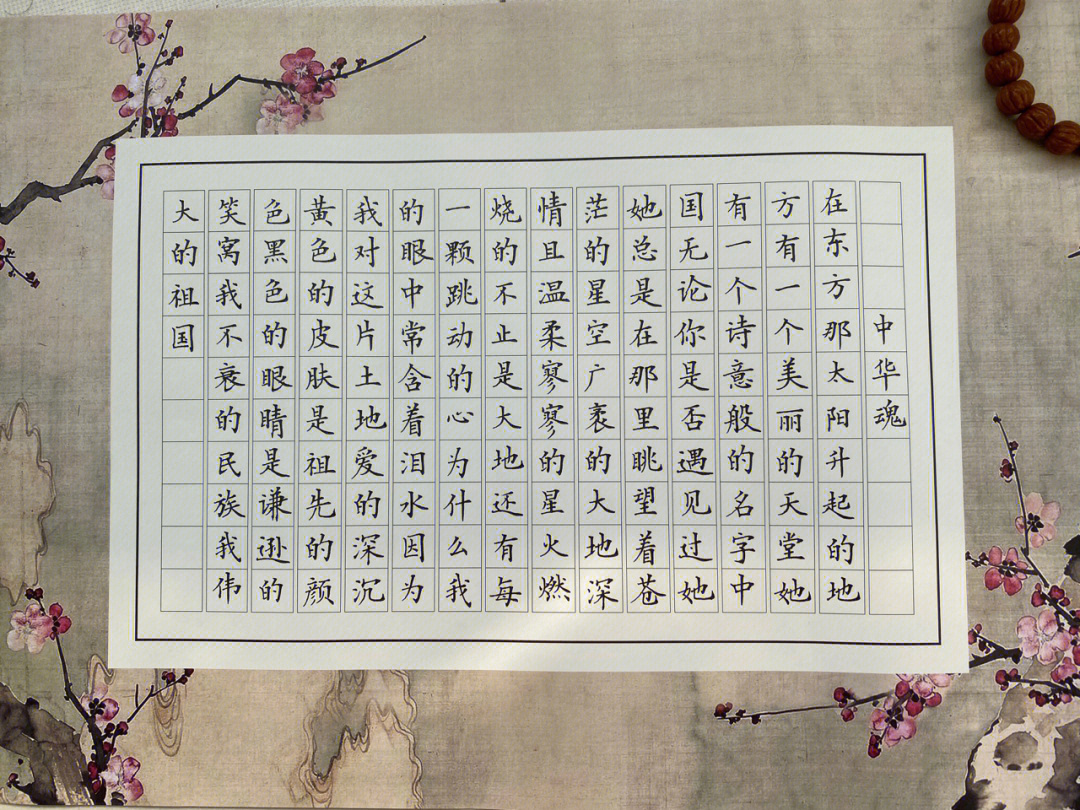 中华魂
在东方那太阳升起的地
方有一个美丽的天堂她
有一个诗意般的名字中
国无论你是否遇见过她
她总是在那里眺望着苍
茫的星空广袤的大地深
情且温柔寥寥的星火燃
烧的不止是大地还有每
一颗跳动的心为什么我
的眼中常含着泪水因为
我对这片土地爱的深沉
黄色的皮肤是祖先的颜
色黑色的眼睛是谦逊的
笑窝我不衰的民族我伟
大的祖国